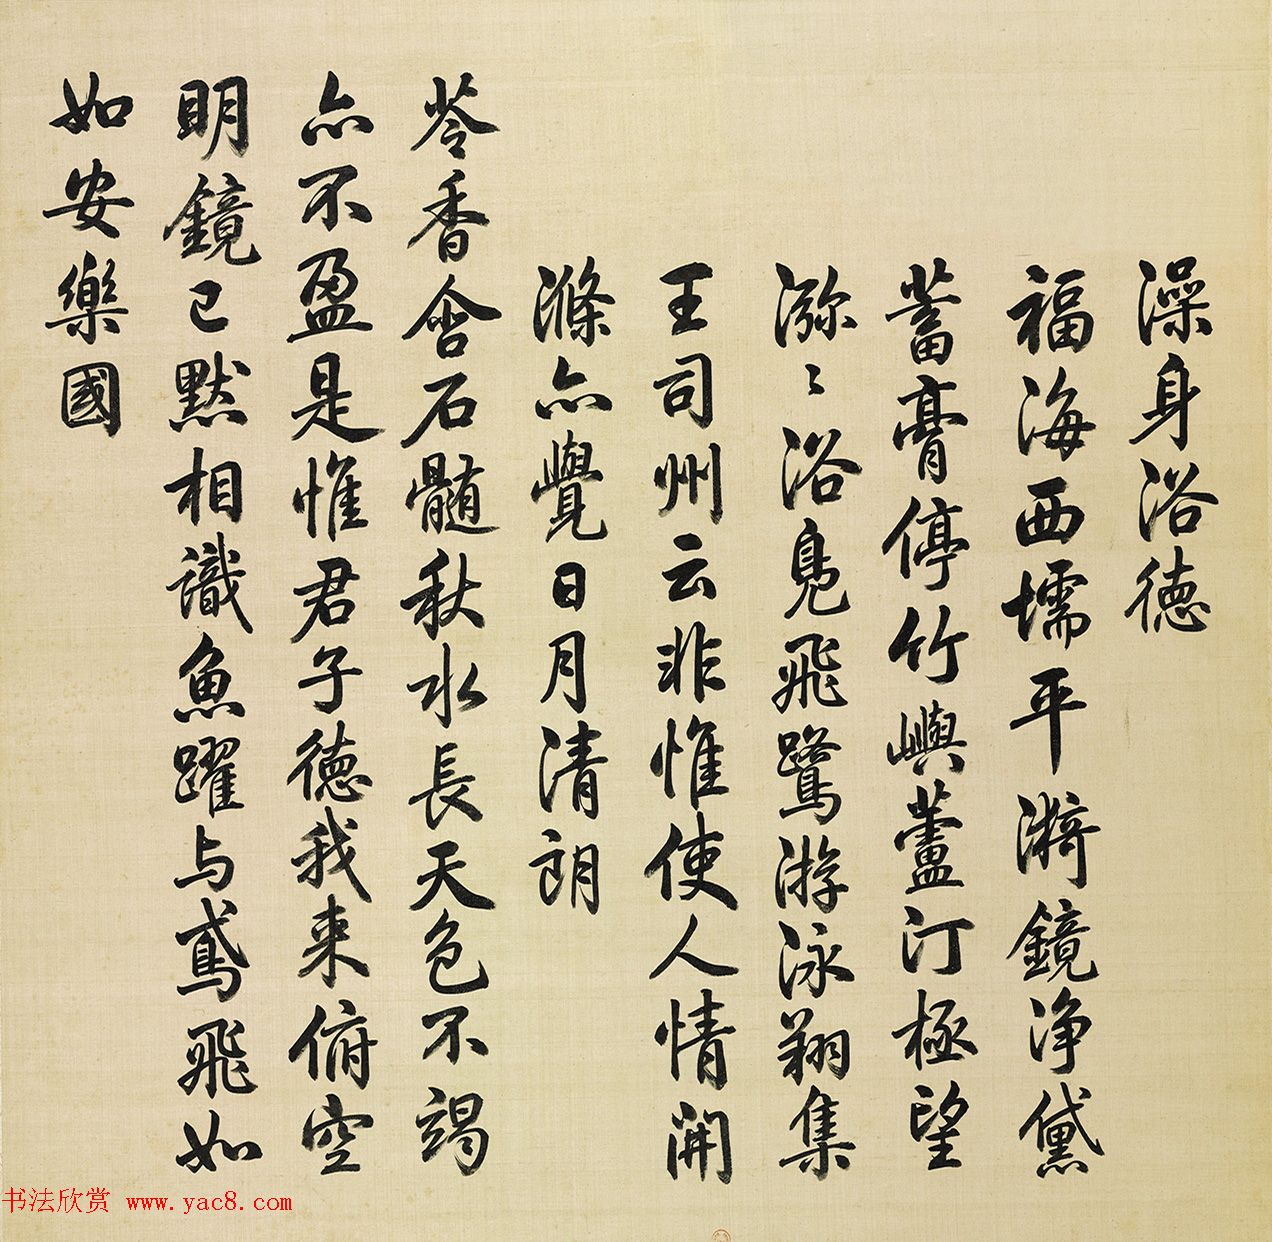 澡身浴德
福海西壖平漪鏡净黛
蓄膏停竹嶼蘆汀極望
瀰〻浴鳧飛鷺游泳翔集
王司州云非惟使人情開
滌亦覺日月清朗
苓香含石髓秋水長天色不竭
亦不盈是惟君子德我来俯空
明鏡已默相識魚躍与鳶飛如
如安樂國
书法欣赏 www.yac8.com